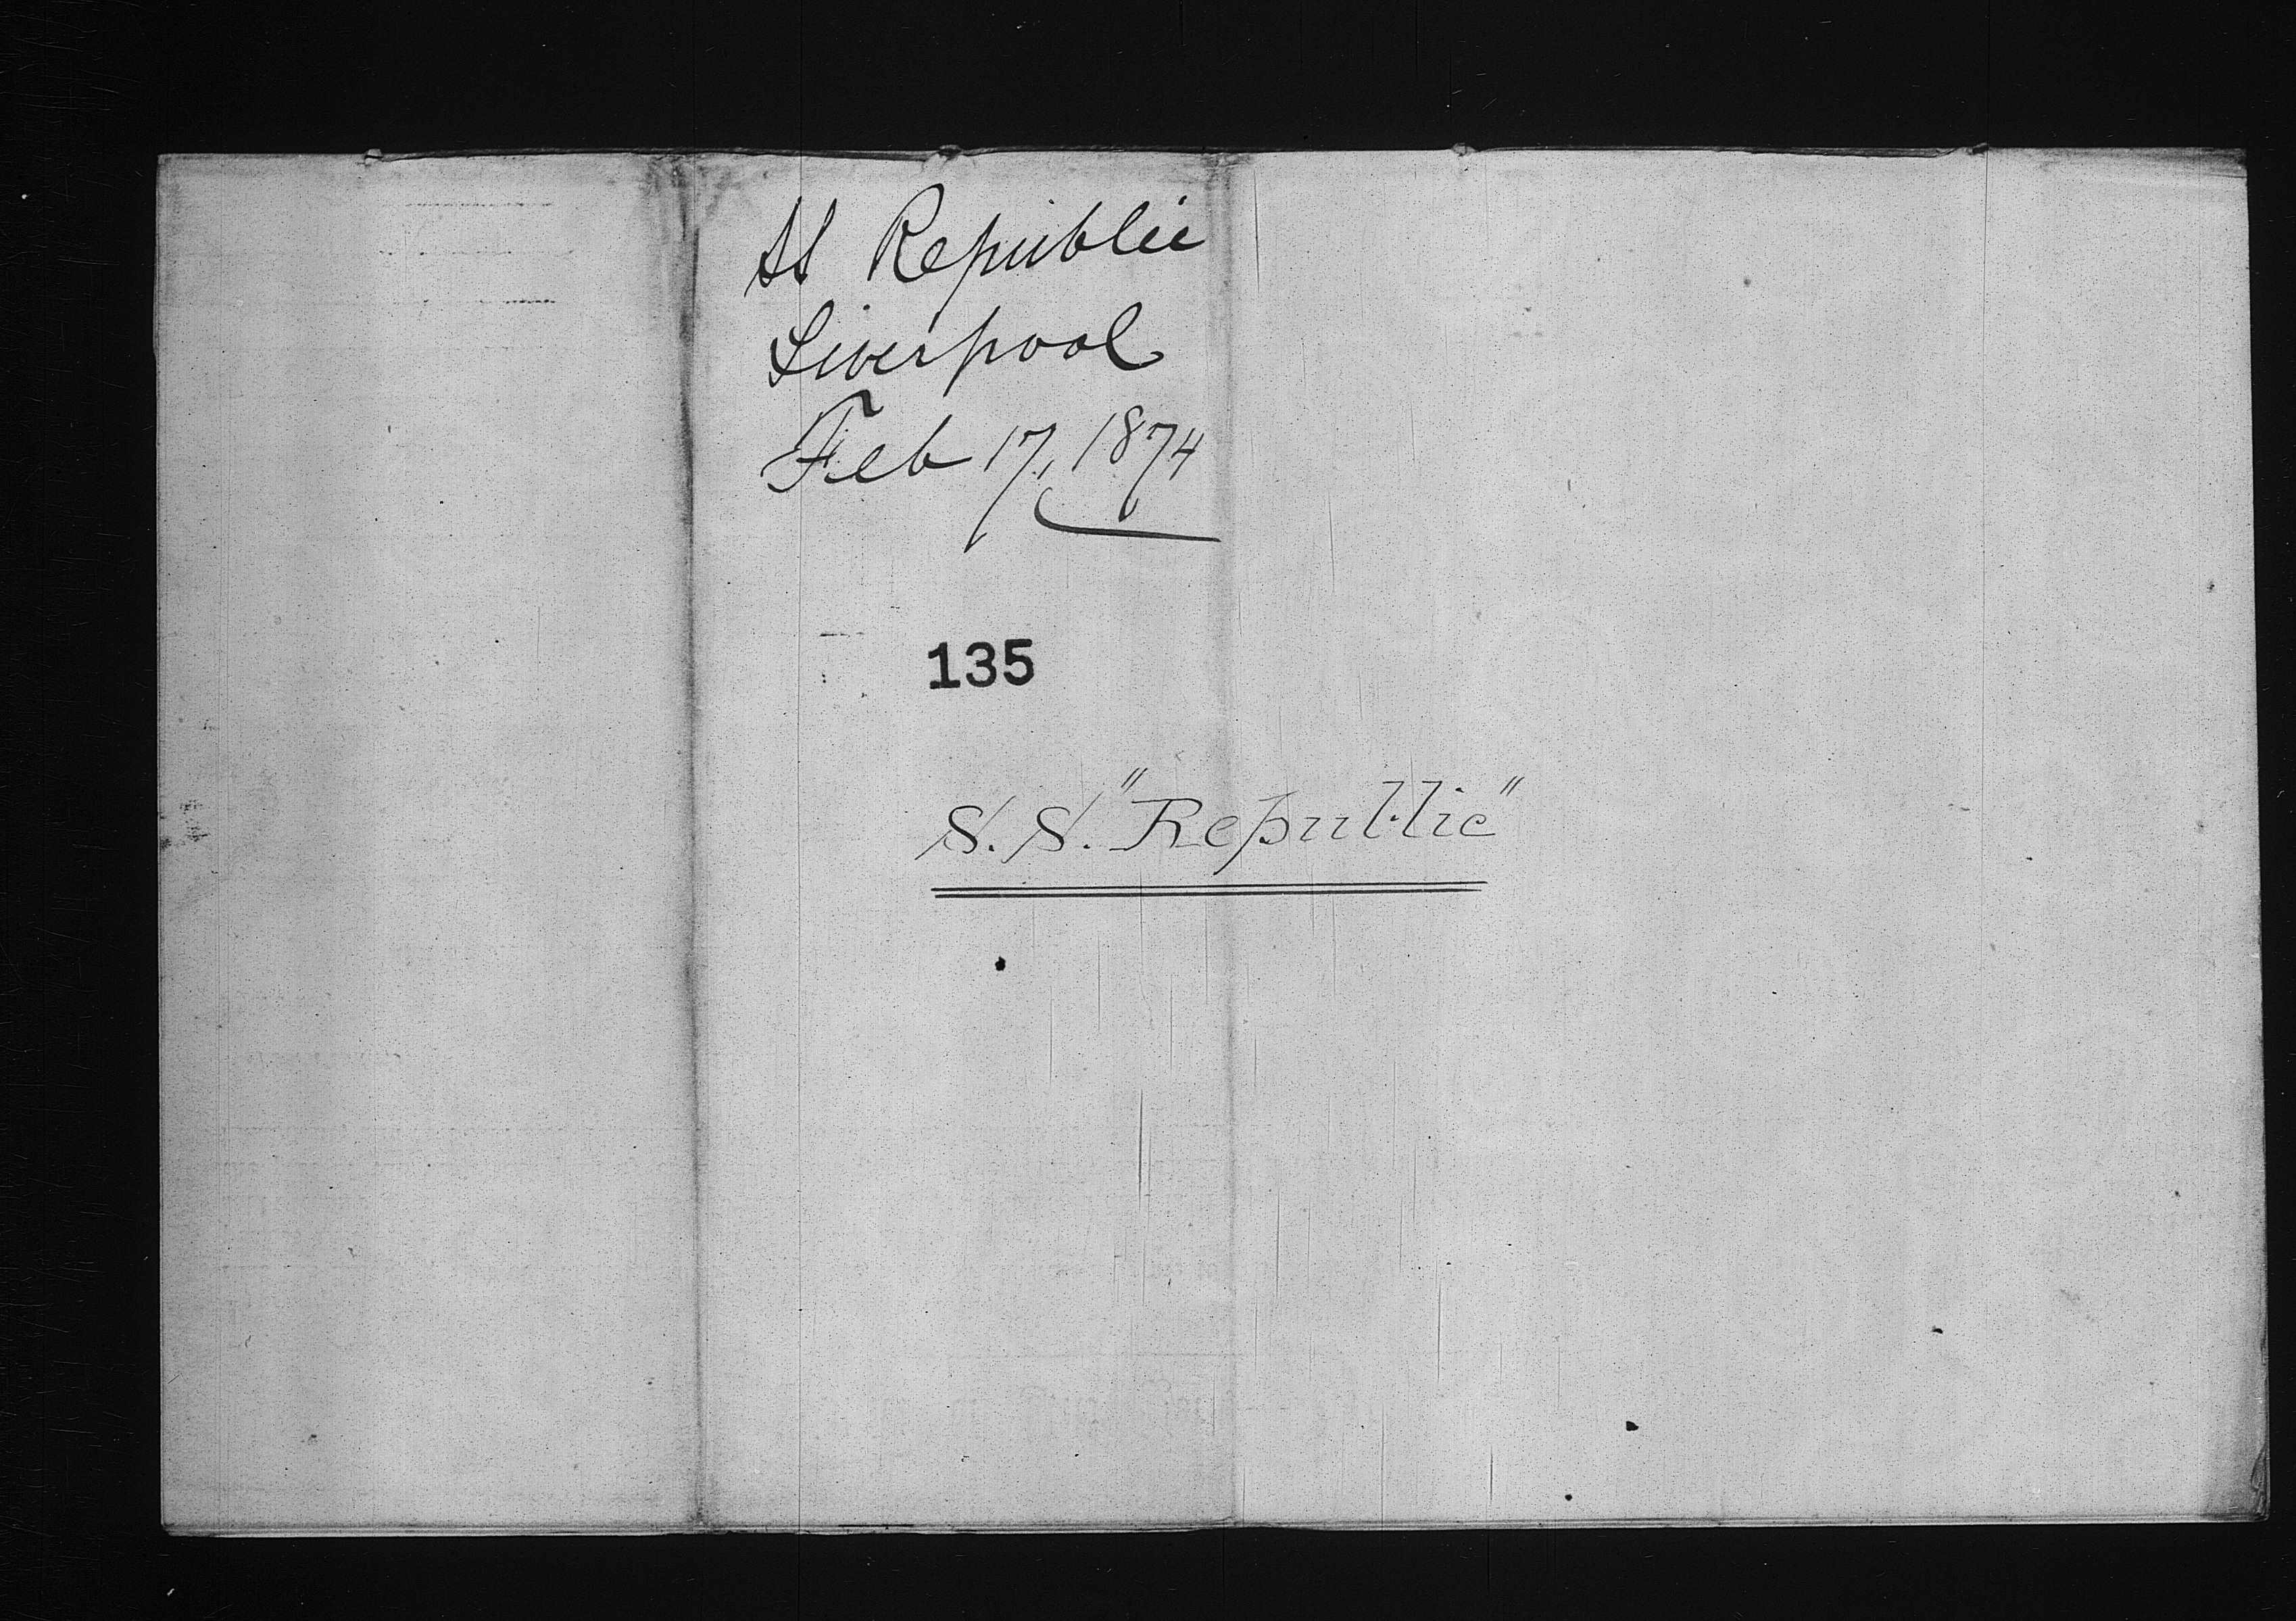 SS Republic
Liverpool
Feb 17, 1874
135
S.S. "Republic"